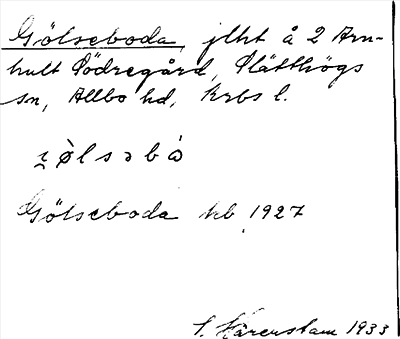 Gölseboda, jlht å 2 Arn-
hult Södregård, Slätthögs
sn, Allbo hd, Krbs l.
ɿ ø l s ə b å
Gölseboda hb 1927
S. Härenstam 1933